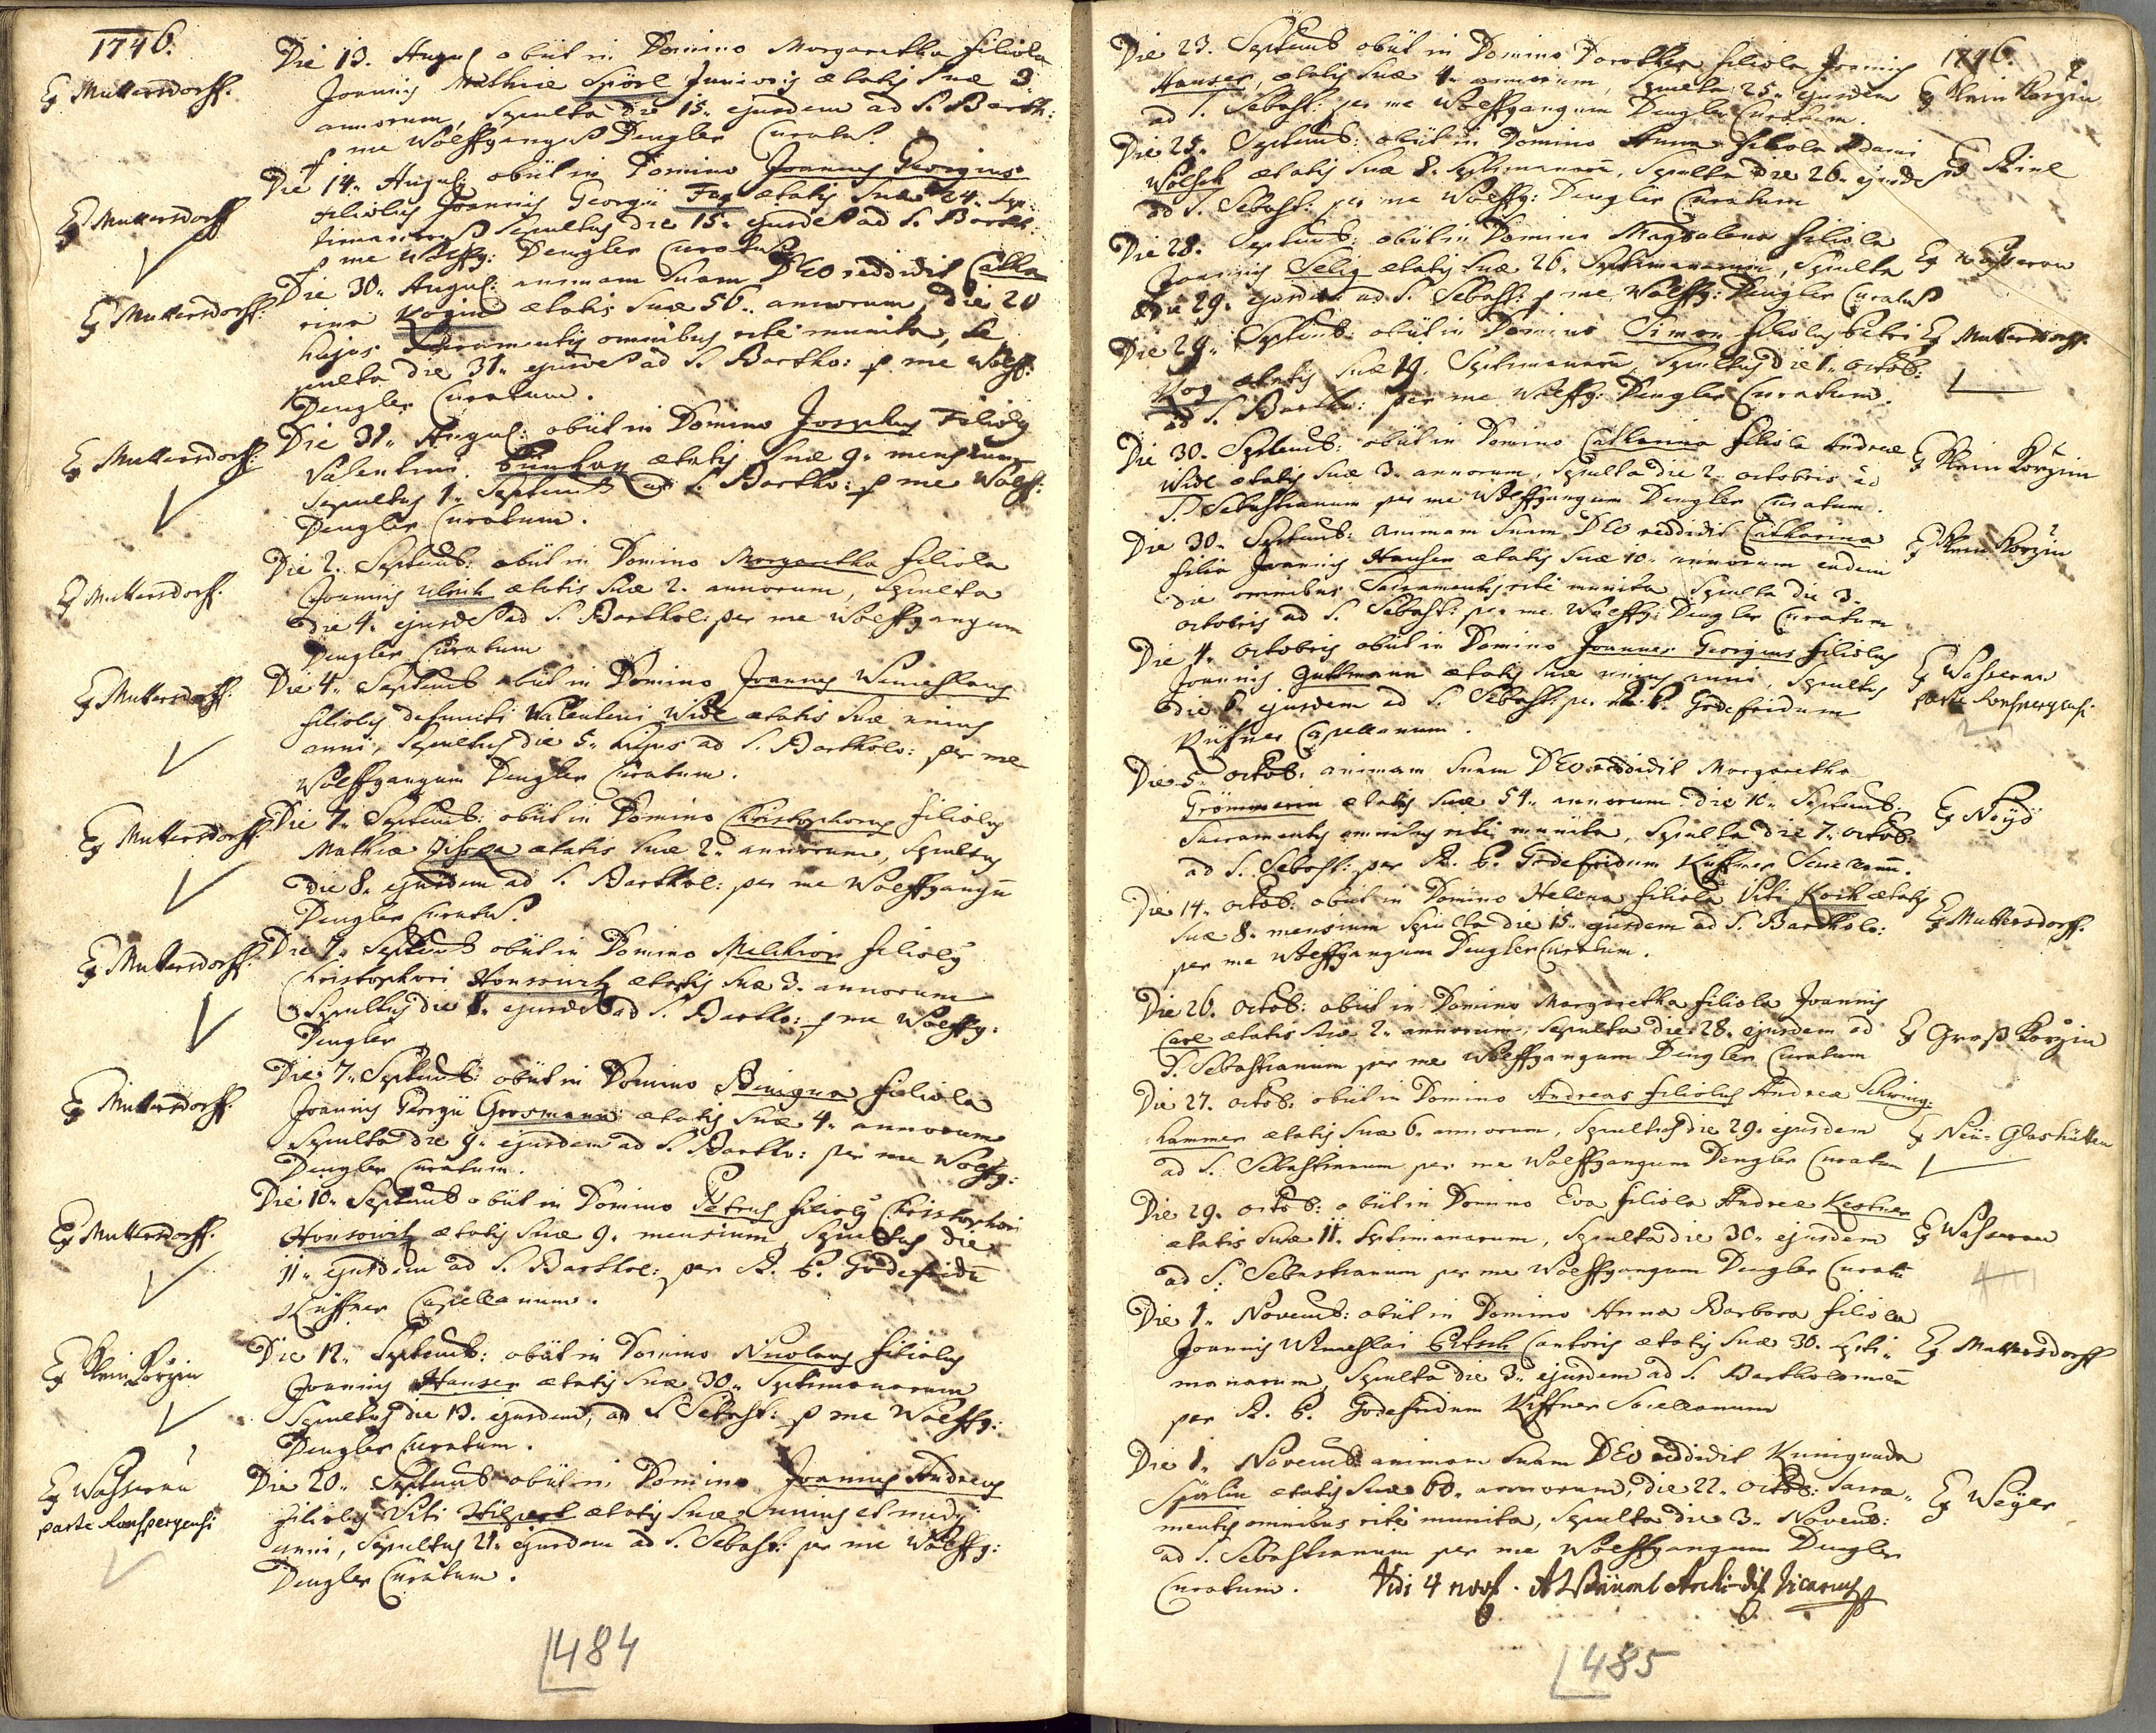 1746.
Ex Muttersdorff.
Die 13. Augus obiit in Domino Margaretha filiola
Joannis Mathiae Spörl Junioris aetatis suae 3.
annorum, Sepulta die 15. ejusdem ad S. Barth:
p me Wolffgang Dengler Curatu
Ex Muttersdorff
Die 14. Augus: obiit in Domino Joannes Georgius
filiolus Joannis Georgii Fax aetatis suae 24. Sep:
timanorum Sepultus die 15. ejusde ad S. Barth:
p me Wolffg: Dengler Curatu
Ex Muttersdorff.
Die 30. Augus: animam suam DEO reddidit Catha
rina Kögin aetatis suae 56. annorum, die 20
hujus Sacramentis omnibus rite munita, Se
pulta die 31. ejusde ad S. Bartho: p me Wolff:
Dengler Curatum.
Ex Muttersdorff.
Die 31. Augus: obiit in Domino Josephus filiolus
Valentini aetatis suae 9. mensium
Sepultus 1. Septemb ad S. Bartho: p me Wolff:
Dengler Curatum.
Ex Muttersdorff.
Die 2. Septemb: obiit in Domino Margaretha filiola
Joannis Ulrich aetatis suae 2. annorum, Sepulta
die 4. ejusde ad S. Barthol: per me Wolffgangum
Dengler Curatum
Ex Muttersdorff.
Die 4. Septemb obiit in Domino Joannes Wenceslaus
filiolus defuncti Valentini Widl aetatis suae unius
anni, Sepultus die 5. hujus ad S. Bartholo: per me
Wolffgangum Dengler Curatum.
Ex Muttersdorff
Die 7. Septemb: obiit in Domino Christophorus filiolus
Mathiae aetatis suae 2. annorum, Sepultus
die 8. ejusdem ad S. Barthol: per me Wolffgangu
Dengler Curatu.
Ex Muttersdorff.
Die 7. Septemb obiit in Domino Melchior filiolus
Christophori Honsowitz aetatis suae 3. annorum
Sepultus die 8. ejusde ad S. Bartho: p me Wolffg:
Dengler
Ex Muttersdorff.
Die 7. Septemb: obiit in Domino Benigna filiola
Joannis Georgii Grosmann aetatis suae 4. annorum
Sepulta die 9. ejusdem ad S. Bartho: per me Wolffg:
Dengler Curatum.
Ex Muttersdorff.
Die 10. Septemb obiit in Domino Petrus filiolus Christophori
Honsowitz aetatis suae 9. mensium, Sepultus die
11. ejusdem ad S. Barthol: per R. P. Godefridu
Küffner Capellanum.
Ex Klein Gorzin
Die 12. Septemb: obiit in Domino Nicolaus filiolus
Joannis Hanser aetatis suae 30. Septimanarum
Sepultus die 13. ejusdem, ad S. Sebast: p me Wolffg:
Dengler Curatum.
Ex Wasserau
parte Ronspergensi
Die 20. Septemb obiit in Domino Joannes Andreas
filiolus Viti Hilpert aetatis suae unius et medij
anni, Sepultus 21. ejusdem ad S. Sebast: per me Wolffg:
Dengler Curatum.
484
1746.
Die 23. Septemb obiit in Domino Dorothea filiola Joannis
Hanser, aetatis suae 4. annorum, Sepulta 25. ejusdem
ad S. Sebast: per me Wolffgangum Dengler Curatum.
Ex Klein Korzin
Die 25. Septemb: obiit in Domino Anna filiola Adami
aetatis suae 8. Septimanaru, Sepulta die 26. ejusde
ad S. Sebast: per me Wolffg: Dengler Curatum
Die 28. Septemb: obiit in Domino Magdalena filiola
Joannis Selig aetatis suae 26. Septimanarum, Sepulta
die 29. ejusdem ad S. Sebast: p me Wolffg: Dengler Curatu
Ex Wasserau
Die 29. Septemb: obiit in Domino Simon filiolus Petri
Kog aetatis suae 19. Septimanaru, Sepultus die 1. octob:
ad S. Bartho: per me Wolffg: Dengler Curatum.
Ex Muttersdorff.
Die 30. Septemb: obiit in Domino Catharina filiola Andreae
Widl aetatis suae 3. annorum, Sepulta die 2. octobris ad
S. Sebastianum per me Wolffgangum Dengler Curatum.
Ex Klein Korzin
Die 30. Septemb: animam suam DEO reddidit Catharina
filia Joannis Hansen aetatis suae 10. annorum eadem
die omnibus Sacramentis rite munita Sepulta die 3.
octobris ad S. Sebast: per me Wolffg: Dengler Curatum
Ex Klein Korzin
Die 4. octobris obiit in Domino Joannes Georgius filiolus
Joannis Guttmann aetatis suae unius anni, Sepultus
die 6. ejusdem ad S. Sebast: per R. P. Godefridum
Küfner Capellanum.
Ex Wasserau
parte Ronspergensi
Die 5. octob: animam suam DEO reddidit Margaretha
Grömmerin aetatis suae 54. annorum die 10. Septemb:
Sacramentis omnibus rite munita, Sepulta die 7. octob:
ad S. Sebast: per R. P. Godefridum Küffner
Ex Neijd
Die 14. octob: obiit in Domino Helena filiola Viti Koch aetatis
suae 8. mensium Sepulta die 15. ejusdem ad S. Bartholo:
per me Wolffgangum Dengler Curatum.
Ex Muttersdorff.
Die 26. octob: obiit in Domino Margaretha filiola Joannis
Carl aetatis suae 2. annorum, Sepulta die 28. ejusdem ad
S. Sebastianum per me Wolffgangum Dengler Curatum
Ex Groß Korzin
Die 27. octob: obiit in Domino Andreas filiolus Andreae Schwing-
hammer aetatis suae 6. annorum, Sepultus die 29. ejusdem
ad S. Sebastianum per me Wolffgangum Dengler Curatum
Ex Neü-Glashütten
Die 29. octob: obiit in Domino Eva filiola Andreae Kestner
aetatis suae 11. Septimanarum, Sepulta die 30. ejusdem
ad S. Sebastianum per me Wolffgangum Dengler Curatu
Ex Wasserau
Die 1. Novemb: obiit in Domino Anna Barbara filiola
Joannis Wenceslai Petsch Cantoris aetatis suae 30. Septi-
manarum, Sepulta die 3. ejusdem ad S. Bartholomaeu
per R. P. Godefridum Kiffner
Ex Muttersdorff
Die 1. Novemb: animam suam DEO reddidit Kunigunda
Spörlin aetatis suae 60. annorum, die 22. octob: Sacra-
mentis omnibus rite munita, Sepulta die 3. Novemb:
ad S. Sebastianum per me Wolffgangum Dengler
Curatum.
Ex Weijer
Vidi 4 Vicarius
485